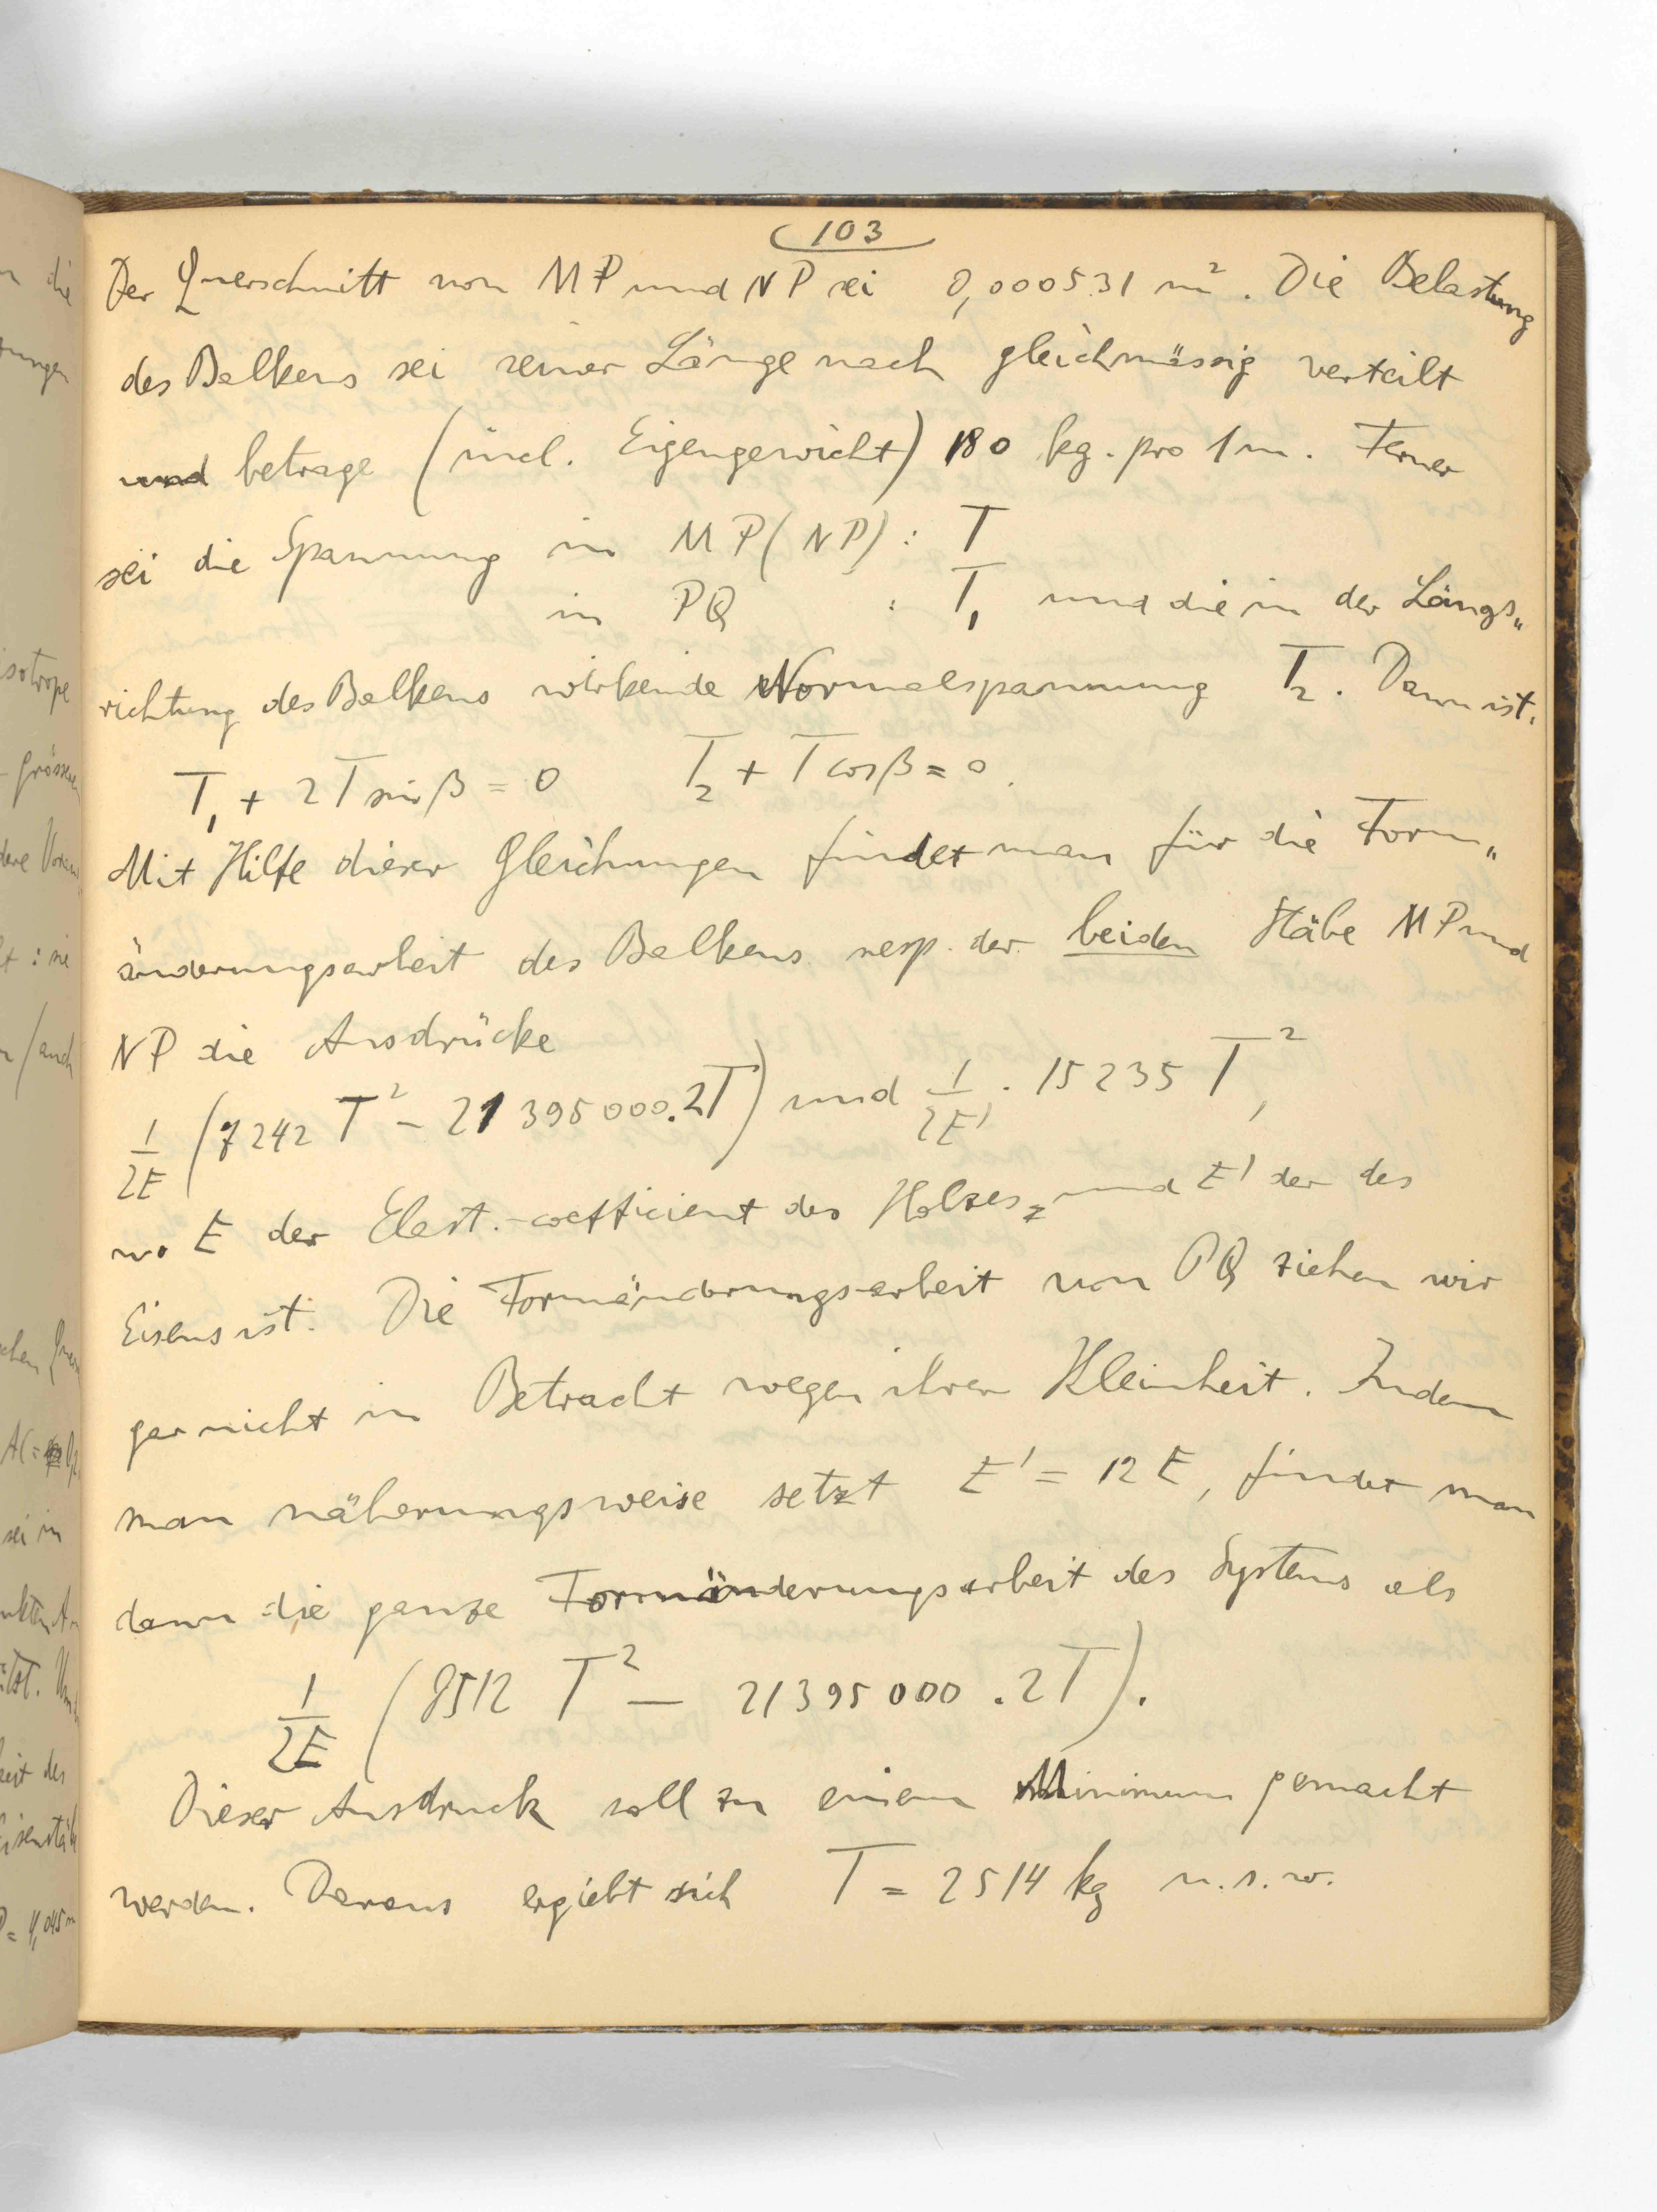 103
Der Querschnitt von MP und NP sei 0,000531 m². Die Belastung
des Balkens sei seiner Länge nach gleichmässig verteilt
und betrage (incl. Eigengewicht) 180 kg. pro 1 m. Ferner
sei die Spannung in MP (NP) : T
in PQ : T₁ und die in der Längs„
richtung des Balkens wirkende Normalspannung T₂. Dann ist:
T₁ + 2T sin β = 0 T₂ + T cos β = 0.
Mit Hilfe dieser Gleichungen findet man für die Form„
änderungsarbeit des Balkens resp. der beiden Stäbe MP und
NP die Ausdrücke
1/2E (7242 T² – 21395000.2T) und 1/2E' . 15235 T²,
wo E der Elast.-coefficient des Holzes, und E' der des
Eisens ist. Die Formänderungsarbeit von PQ ziehen wir
gar nicht in Betracht wegen ihrer Kleinheit. Indem
man näherungsweise setzt E' = 12 E, findet man
dann die ganze Formänderungsarbeit des Systems als
1/2E (8512 T² – 21395000 . 2T).
Dieser Ausdruck soll zu einem Minimum gemacht
werden. Daraus ergiebt sich T = 2514 kg u. s. w.